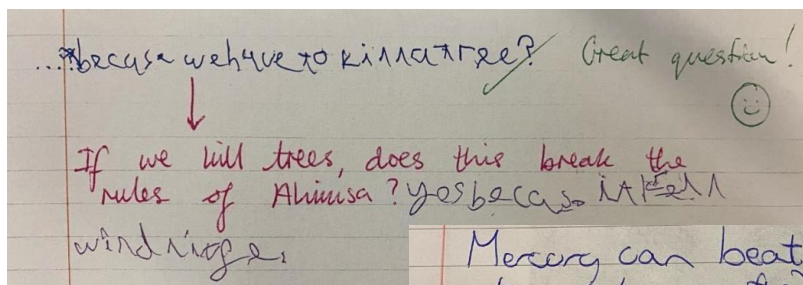 ...becuse we have to kill a tree? Great question!
If we kill trees, does this break the
rules of Ahimsa? yes becaus it
Mercury can beat